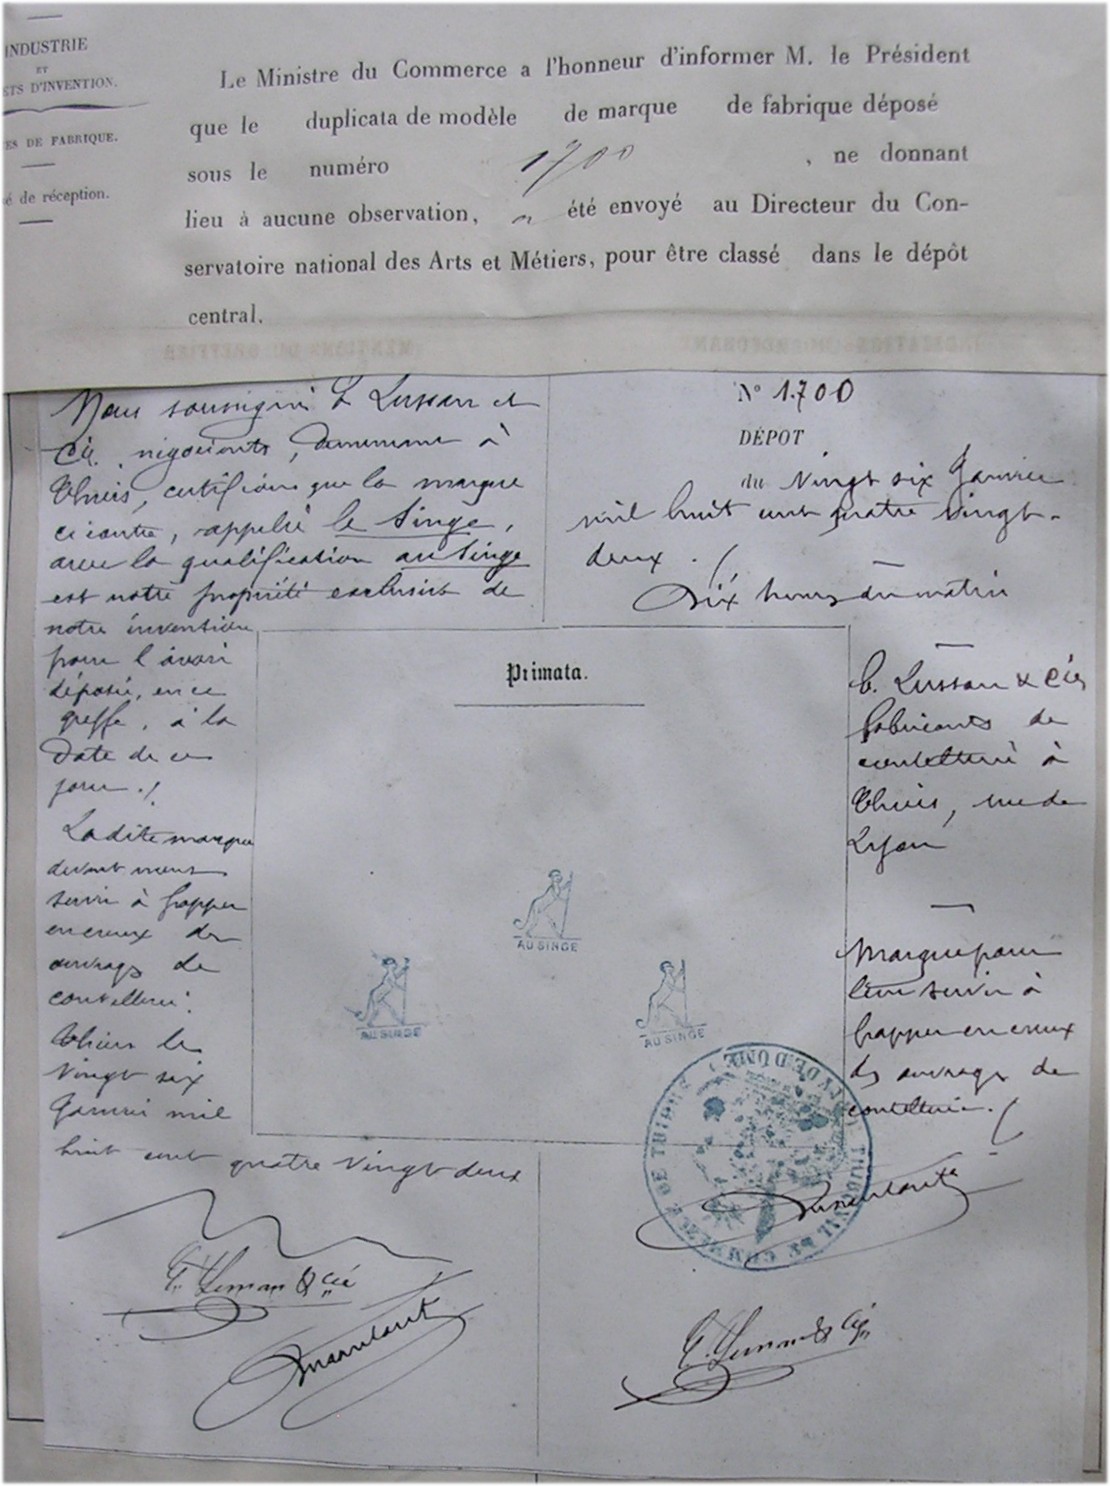 INDUSTRIE
ET
ETS D'INVENTION.
ES DE FABRIQUE.
é de réception.
Le Ministre du Commerce a l'honneur d'informer M. le Président
que le duplicata de modèle de marque de fabrique déposé
sous le numéro 1700, ne donnant
lieu à aucune observation, a été envoyé au Directeur du Con-
servatoire national des Arts et Métiers, pour être classé dans le dépôt
central.
Nous soussigné E Lussan et
Cie. négociants, demeurant à
Thiers, certifions que la marque
ci contre, appelée le Singe,
avec la qualification au Singe
est notre propriété exclusive de
notre invention
pour l'avoir
déposée, en ce
greffe, à la
date de ce
jour.
La dite marque
devant nous
servir à frapper
en creux des
ouvrages de
coutellerie.
Thiers le
vingt six
Janvier mil
huit cent quatre vingt deux
E. Lussan & Cie
N° 1.700
DÉPOT
du Vingt six Janvier
mil huit cent quatre vingt-
deux.
Dix heures du matin
Primata.
AU SINGE
AU SINGE
AU SINGE
E. Lussan & Cie
fabricants de
coutellerie à
Thiers, rue de
Lyon
Marque pour
leur servir à
frapper en creux
des ouvrages de
coutellerie.
TRIBUNAL DE COMMERCE DE THIERS
PUY DE DÔME
E. Lussan & Cie